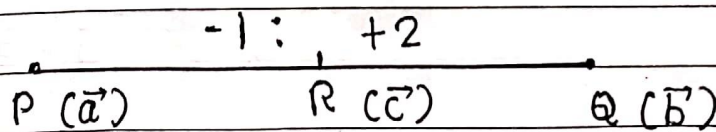 -1 : +2
P (a⃗) R (c⃗) Q (b⃗)